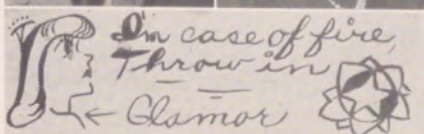 In case of fire,
Throw in
Glamor